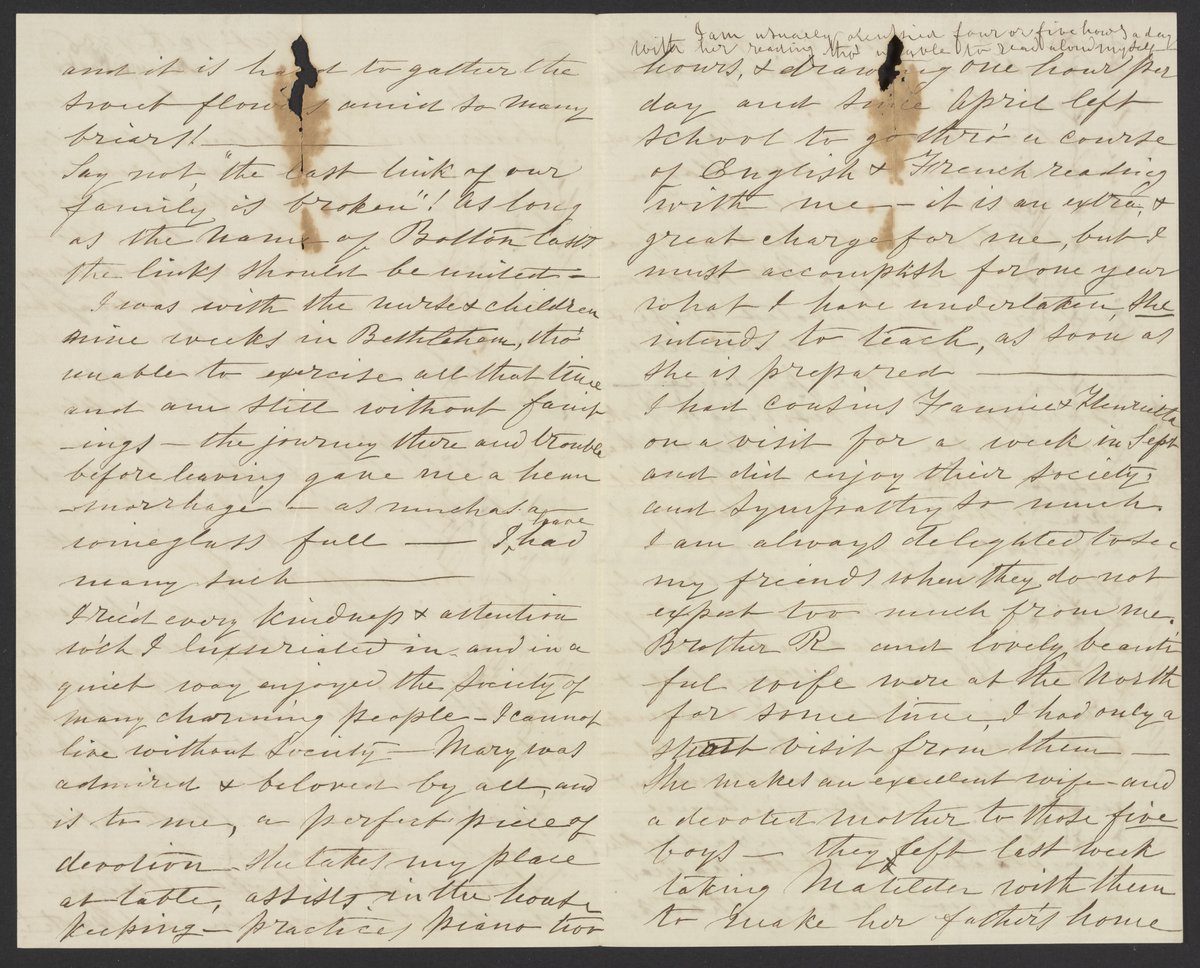 and it is hard to gather the
sweet flowers amid so many
briars!
Say not "the last link of our
family is broken"! As long
as the name of Bolton lasts
the links should be united —
I was with the nurse & children
nine weeks in Bethlehem, tho'
unable to exercise all that time
and am still without faint
-ings — the journey there and trouble
before leaving gave me a hem
-morrhage — as much as a
wineglass full — I have had
many such
I rec'd every kindness & attention
wch I luxuriated in and in a
quiet way enjoyed the society of
many charming people — I cannot
live without Society — Mary was
admired & beloved by all, and
is to me, a perfect piece of
devotion she takes my place
at table, assists in the house
keeping — practices piano two
I am usually occupied four or five hours a day
with her reading tho' unable to read aloud myself
hours, & drawing one hour per
day and since April left
school to go thro' a course
of English & French reading
with me — it is an extra, &
great charge for me, but I
must accomplish for one year
what I have undertaken, She
intends to teach, as soon as
she is prepared —
I had cousins Fannie & Henrietta
on a visit for a week in Sept
and did enjoy their society,
and sympathy so much
I am always delighted to see
my friends when they do not
expect too much from me.
Brother R and lovely beauti
-ful wife were at the North
for some time I had only a
short visit from them —
She makes an excellent wife and
a devoted mother to those five
boys — they left last week
taking Matilder with them
to make her father's home